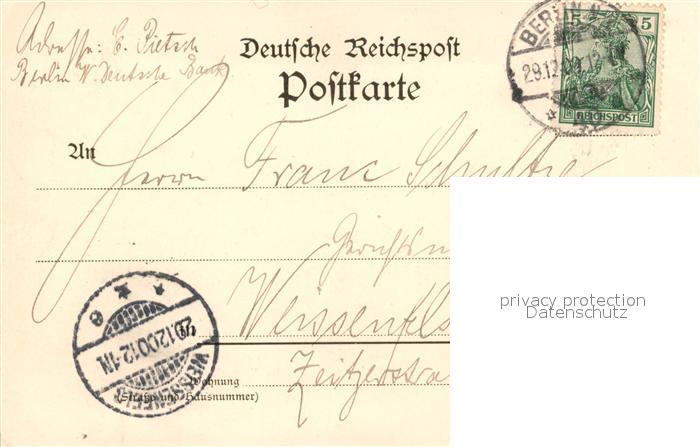 Adresse: C. Pietsch
Berlin W. Deutsche Bank
Deutsche Reichspost
Postkarte
BERLIN
29.12.00.12
5 5
REICHSPOST
An
Herrn Franz Schultze
Weissenfels
in
Zeitzerstra
Wohnung
(Straße und Hausnummer)
WEISSENFELS
29.12.00.12-1N
privacy protection
Datenschutz